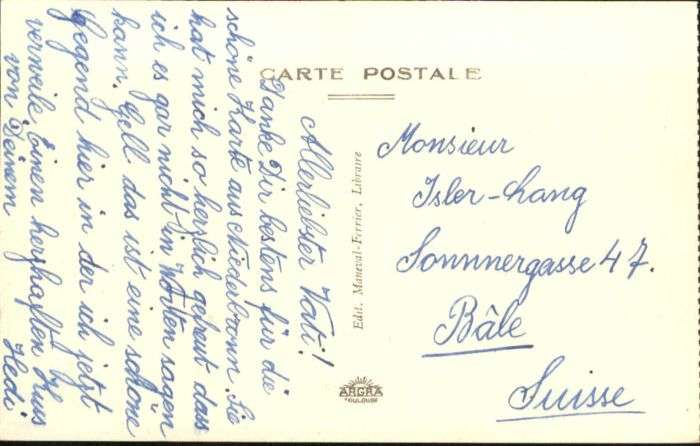 CARTE POSTALE
Allerliebster Vati!
Danke Dir bestens für die
schöne Karte aus Niederbronn. Sie
hat mich so herzlich gefreut dass
ich es gar nicht in Worten sagen
kann. Gell das ist eine schöne
Gegend hier in der ich jetzt
verweile. Einen herzhaften Kuss
von Deinem Hedi
Edit. Maneval-Ferrier, Libraire
Monsieur
Isler-Lang
Sonnnergasse 47.
Bâle
Suisse
ARGRA
TOULOUSE